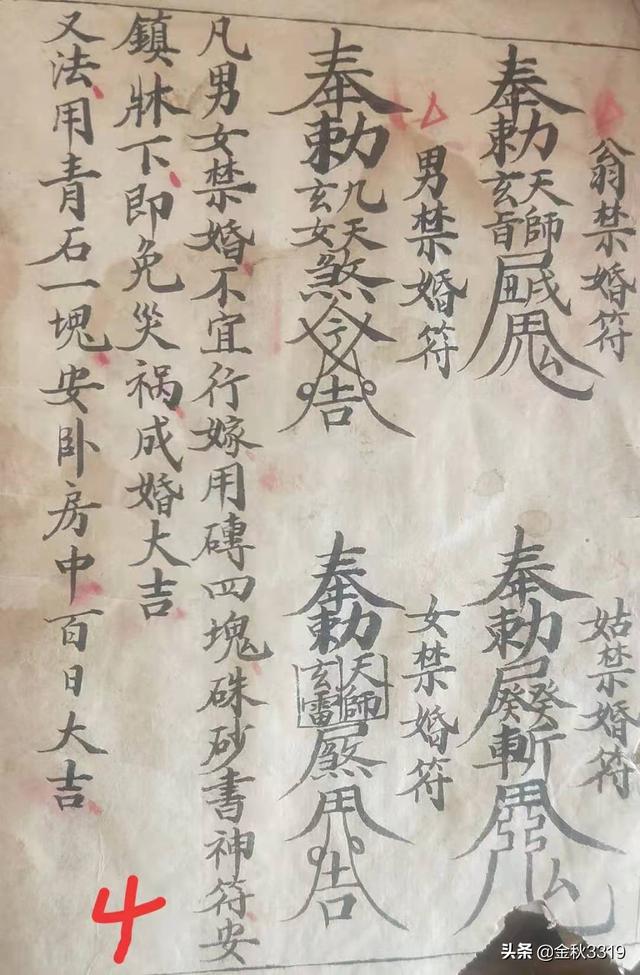 翁禁婚符
奉勅
天師
玄音
姑禁婚符
奉勅
斬
男禁婚符
奉勅
九天
玄女
煞
女禁婚符
奉勅
天師
玄雷
凡男女禁婚不宜行嫁用磚四塊硃砂書神符安
鎮牀下即免災禍成婚大吉
又法用青石一塊安卧房中百日大吉
4
头条 @金秋3319